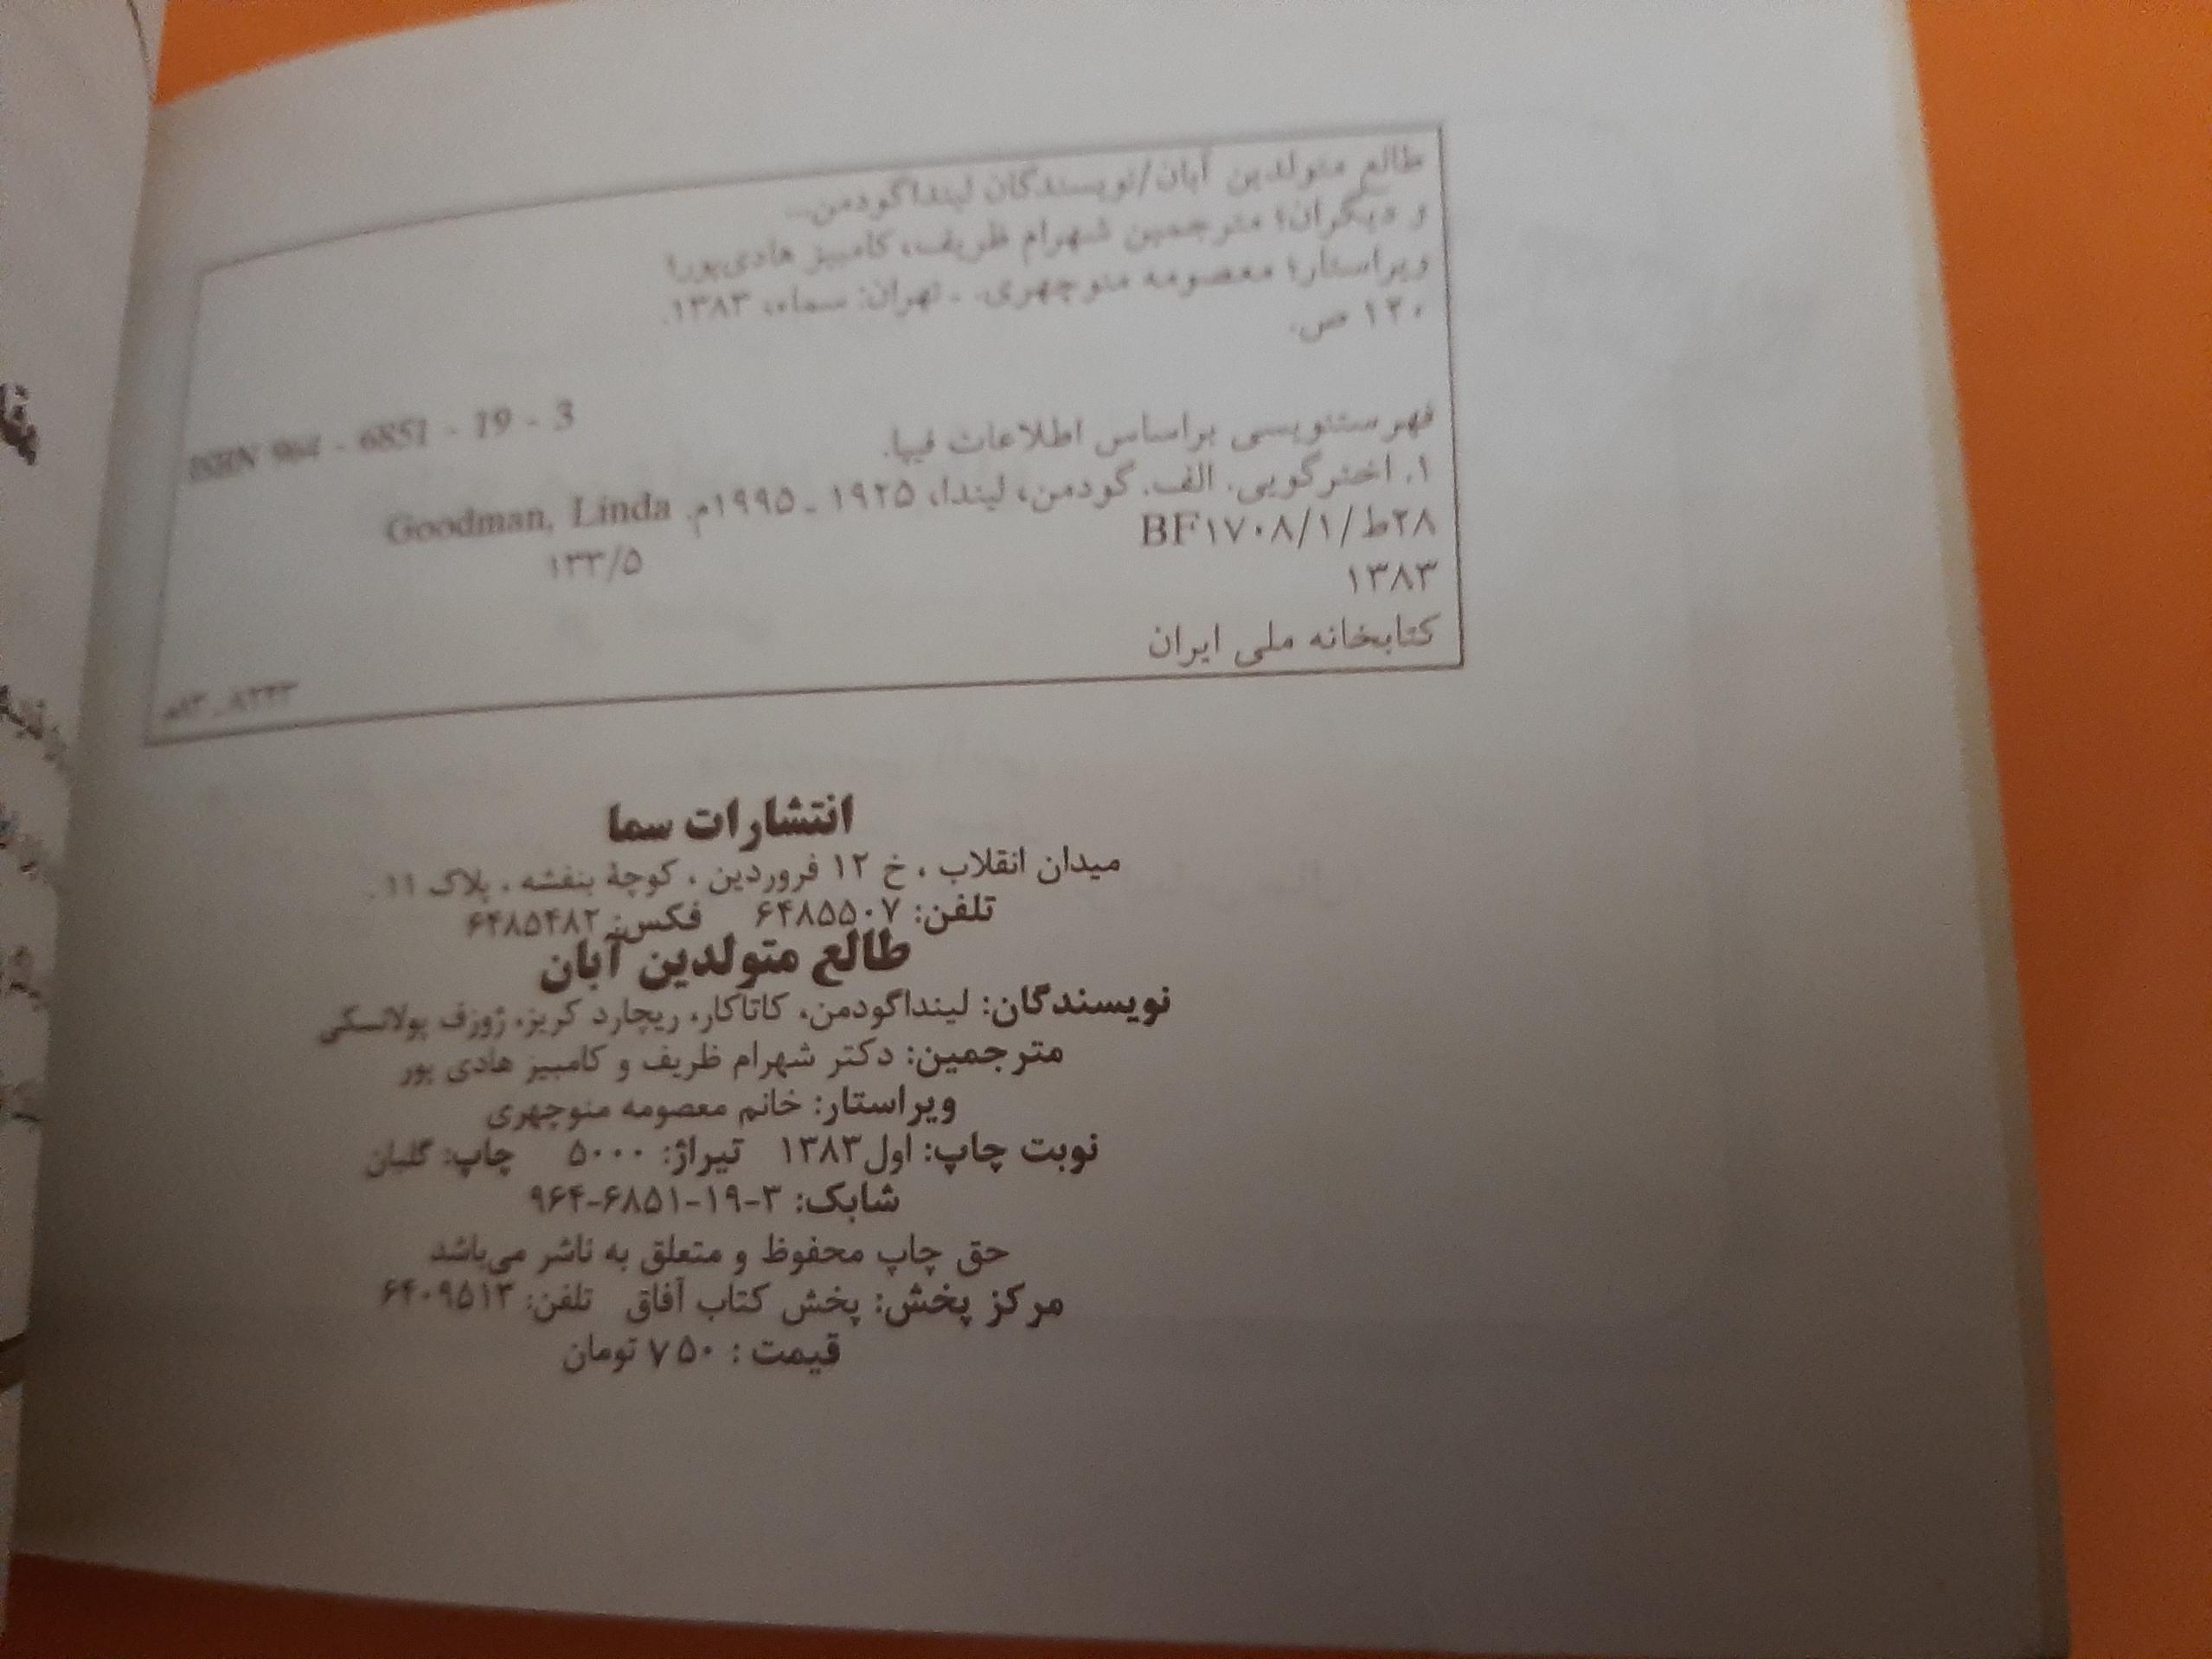 طالع متولدین آبان/نویسندگان لینداگودمن...
و دیگران؛ مترجمین شهرام ظریف، کامبیز هادی‌پور؛
ویراستار؛ معصومه منوچهری. ـ تهران: سماء، ۱۳۸۳.
۱۲۰ ص.
ISBN 964 - 6851 - 19 - 3
فهرستنویسی براساس اطلاعات فیپا.
۱. اخترگویی. الف. گودمن، لیندا، ۱۹۲۵ ـ ۱۹۹۵م. Goodman, Linda
۲۸ط/۱/BF۱۷۰۸ ۱۳۳/۵
۱۳۸۳
کتابخانه ملی ایران
انتشارات سما
میدان انقلاب ، خ ۱۲ فروردین ، کوچهٔ بنفشه ، پلاک ۱۱ .
تلفن: ۶۴۸۵۵۰۷ فکس: ۶۴۸۵۴۸۲
طالع متولدین آبان
نویسندگان: لینداگودمن، کاتاکار، ریچارد کریز، ژوزف پولانسکی
مترجمین: دکتر شهرام ظریف و کامبیز هادی پور
ویراستار: خانم معصومه منوچهری
نوبت چاپ: اول ۱۳۸۳ تیراژ: ۵۰۰۰ چاپ: گلبان
شابک: ۳-۱۹-۶۸۵۱-۹۶۴
حق چاپ محفوظ و متعلق به ناشر می‌باشد
مرکز پخش: پخش کتاب آفاق تلفن: ۶۴۰۹۵۱۳
قیمت : ۷۵۰ تومان